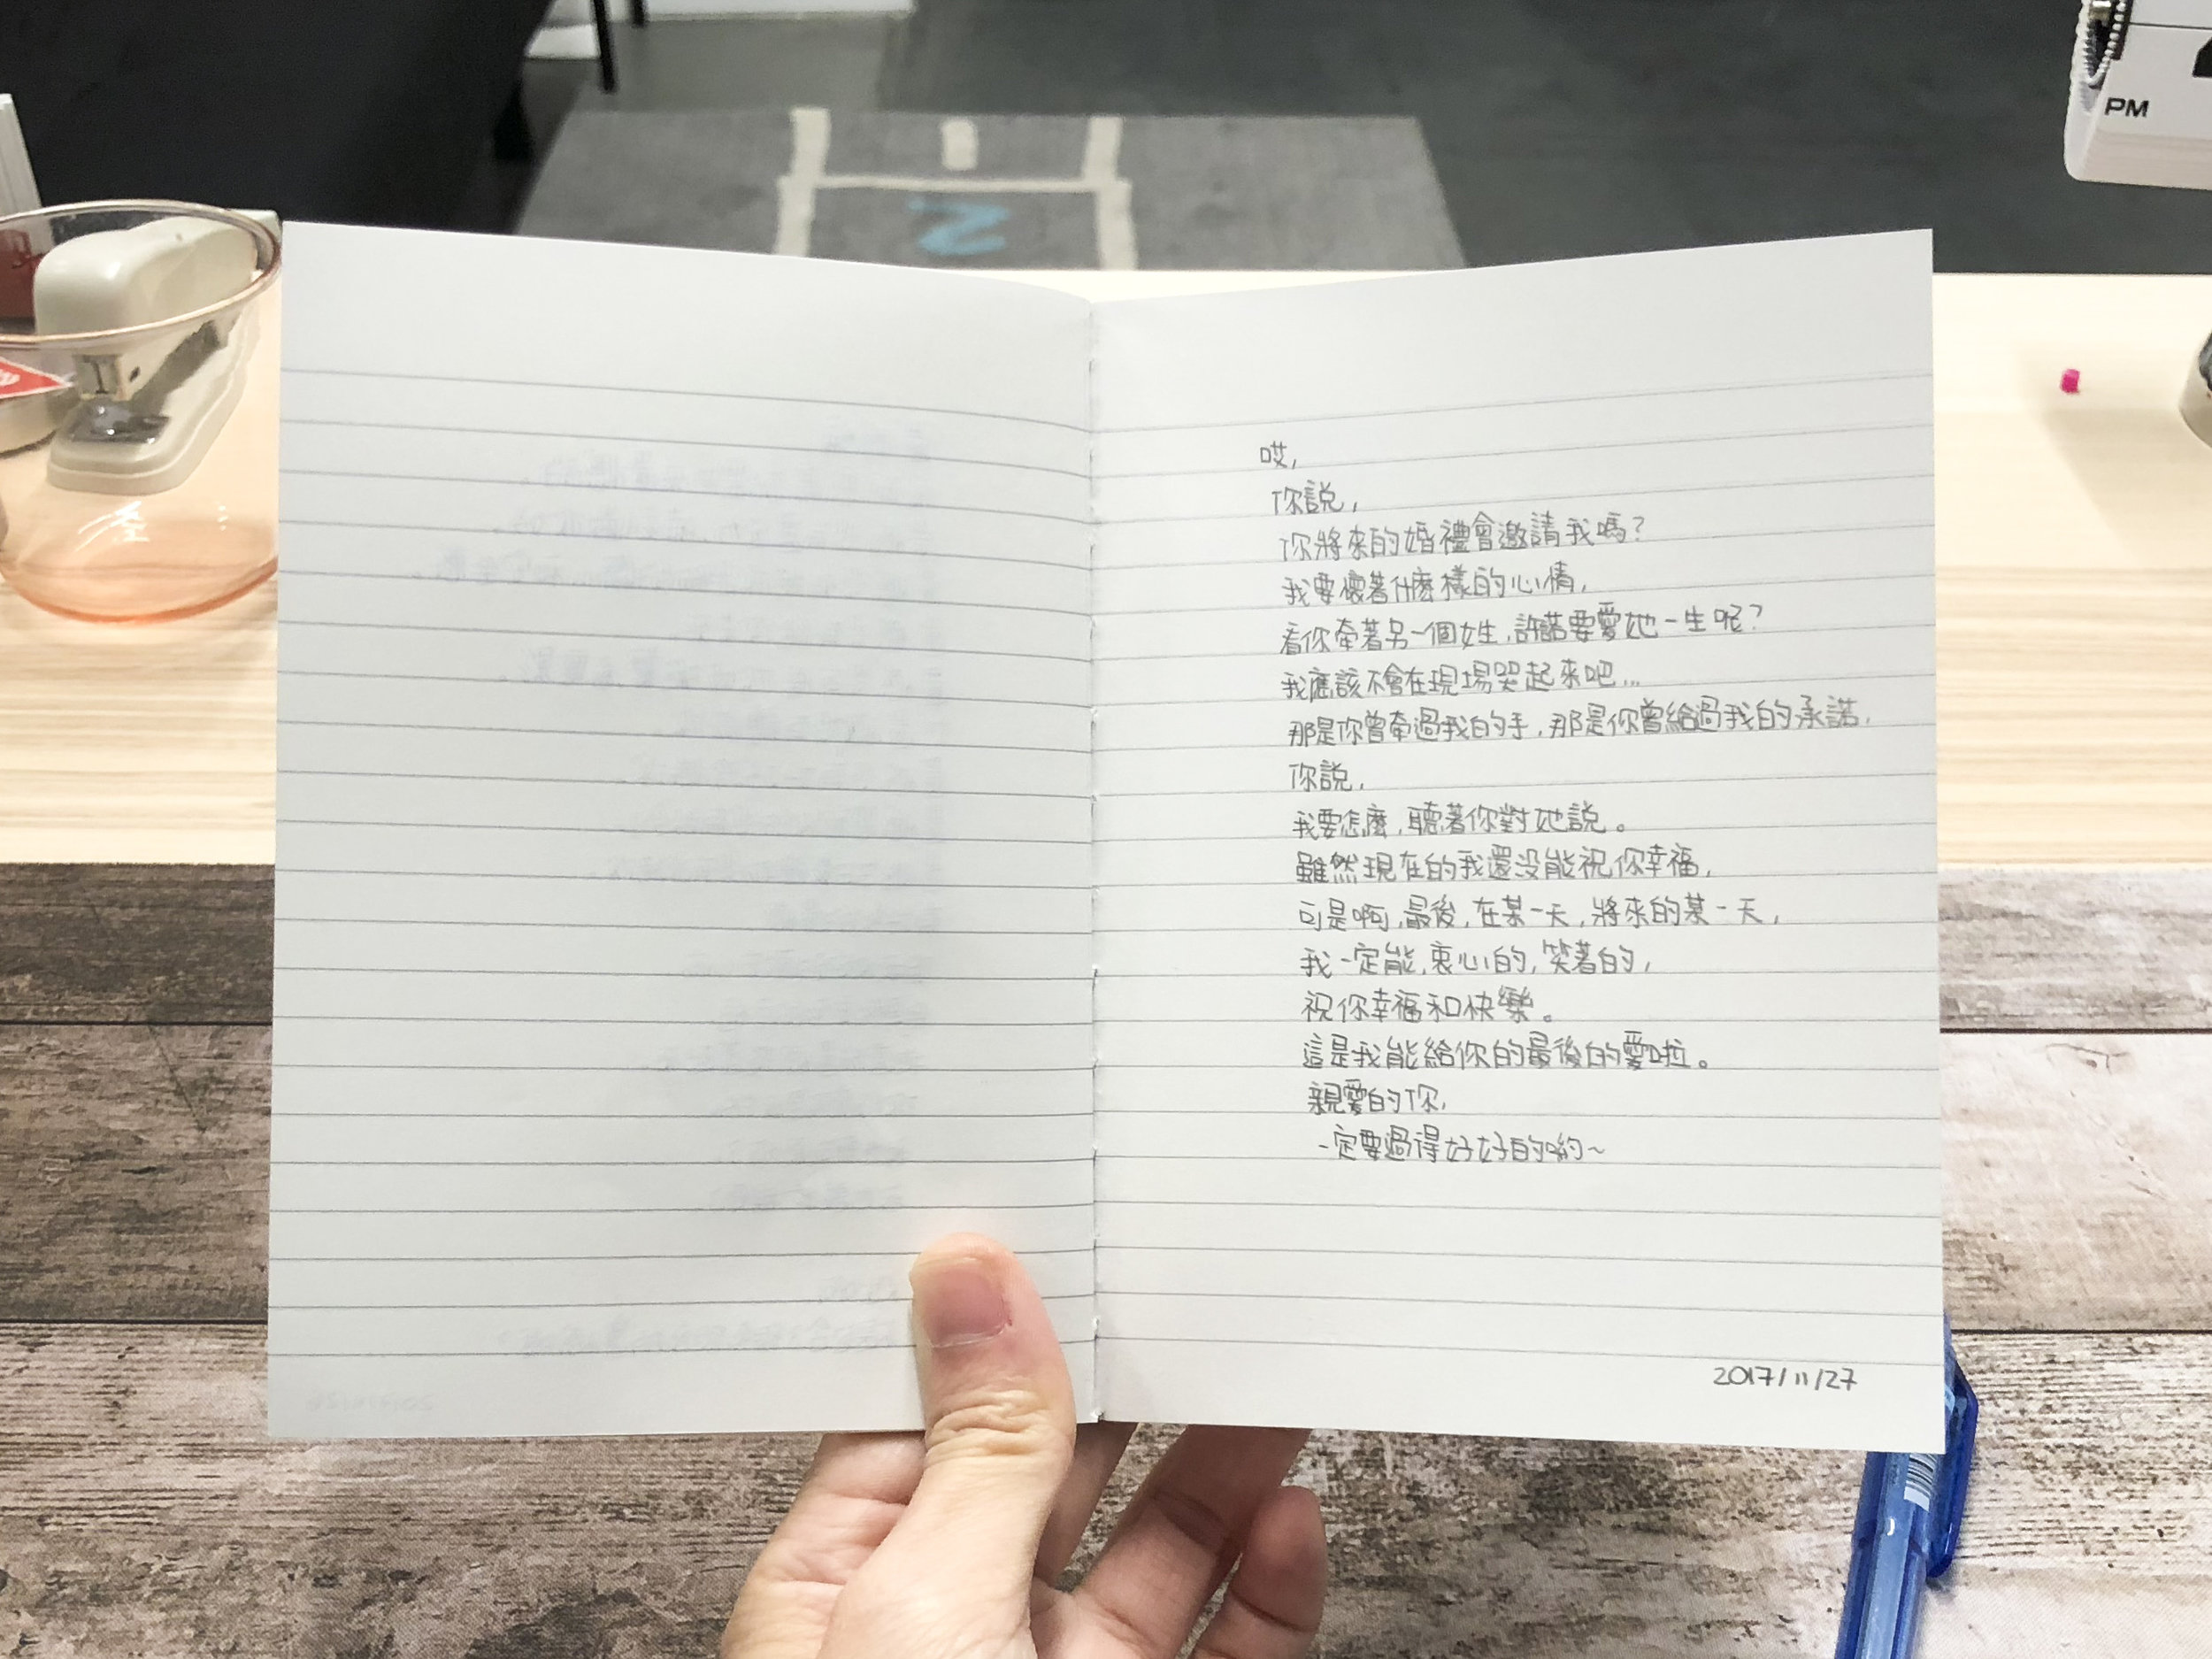 PM
哎,
你說,
你將來的婚禮會邀請我嗎?
我要懷著什麼樣的心情,
看你牽著另一個女生,許諾要愛她一生呢?
我應該不會在現場哭起來吧...
那是你曾牽過我的手,那是你曾給過我的承諾,
你說,
我要怎麼,聽著你對她說。
雖然現在的我還沒能祝你幸福,
可是啊,最後,在某一天,將來的某一天,
我一定能,衷心的,笑著的,
祝你幸福和快樂。
這是我能給你的最後的愛啦。
親愛的你,
一定要過得好好的喲~
2017/11/27